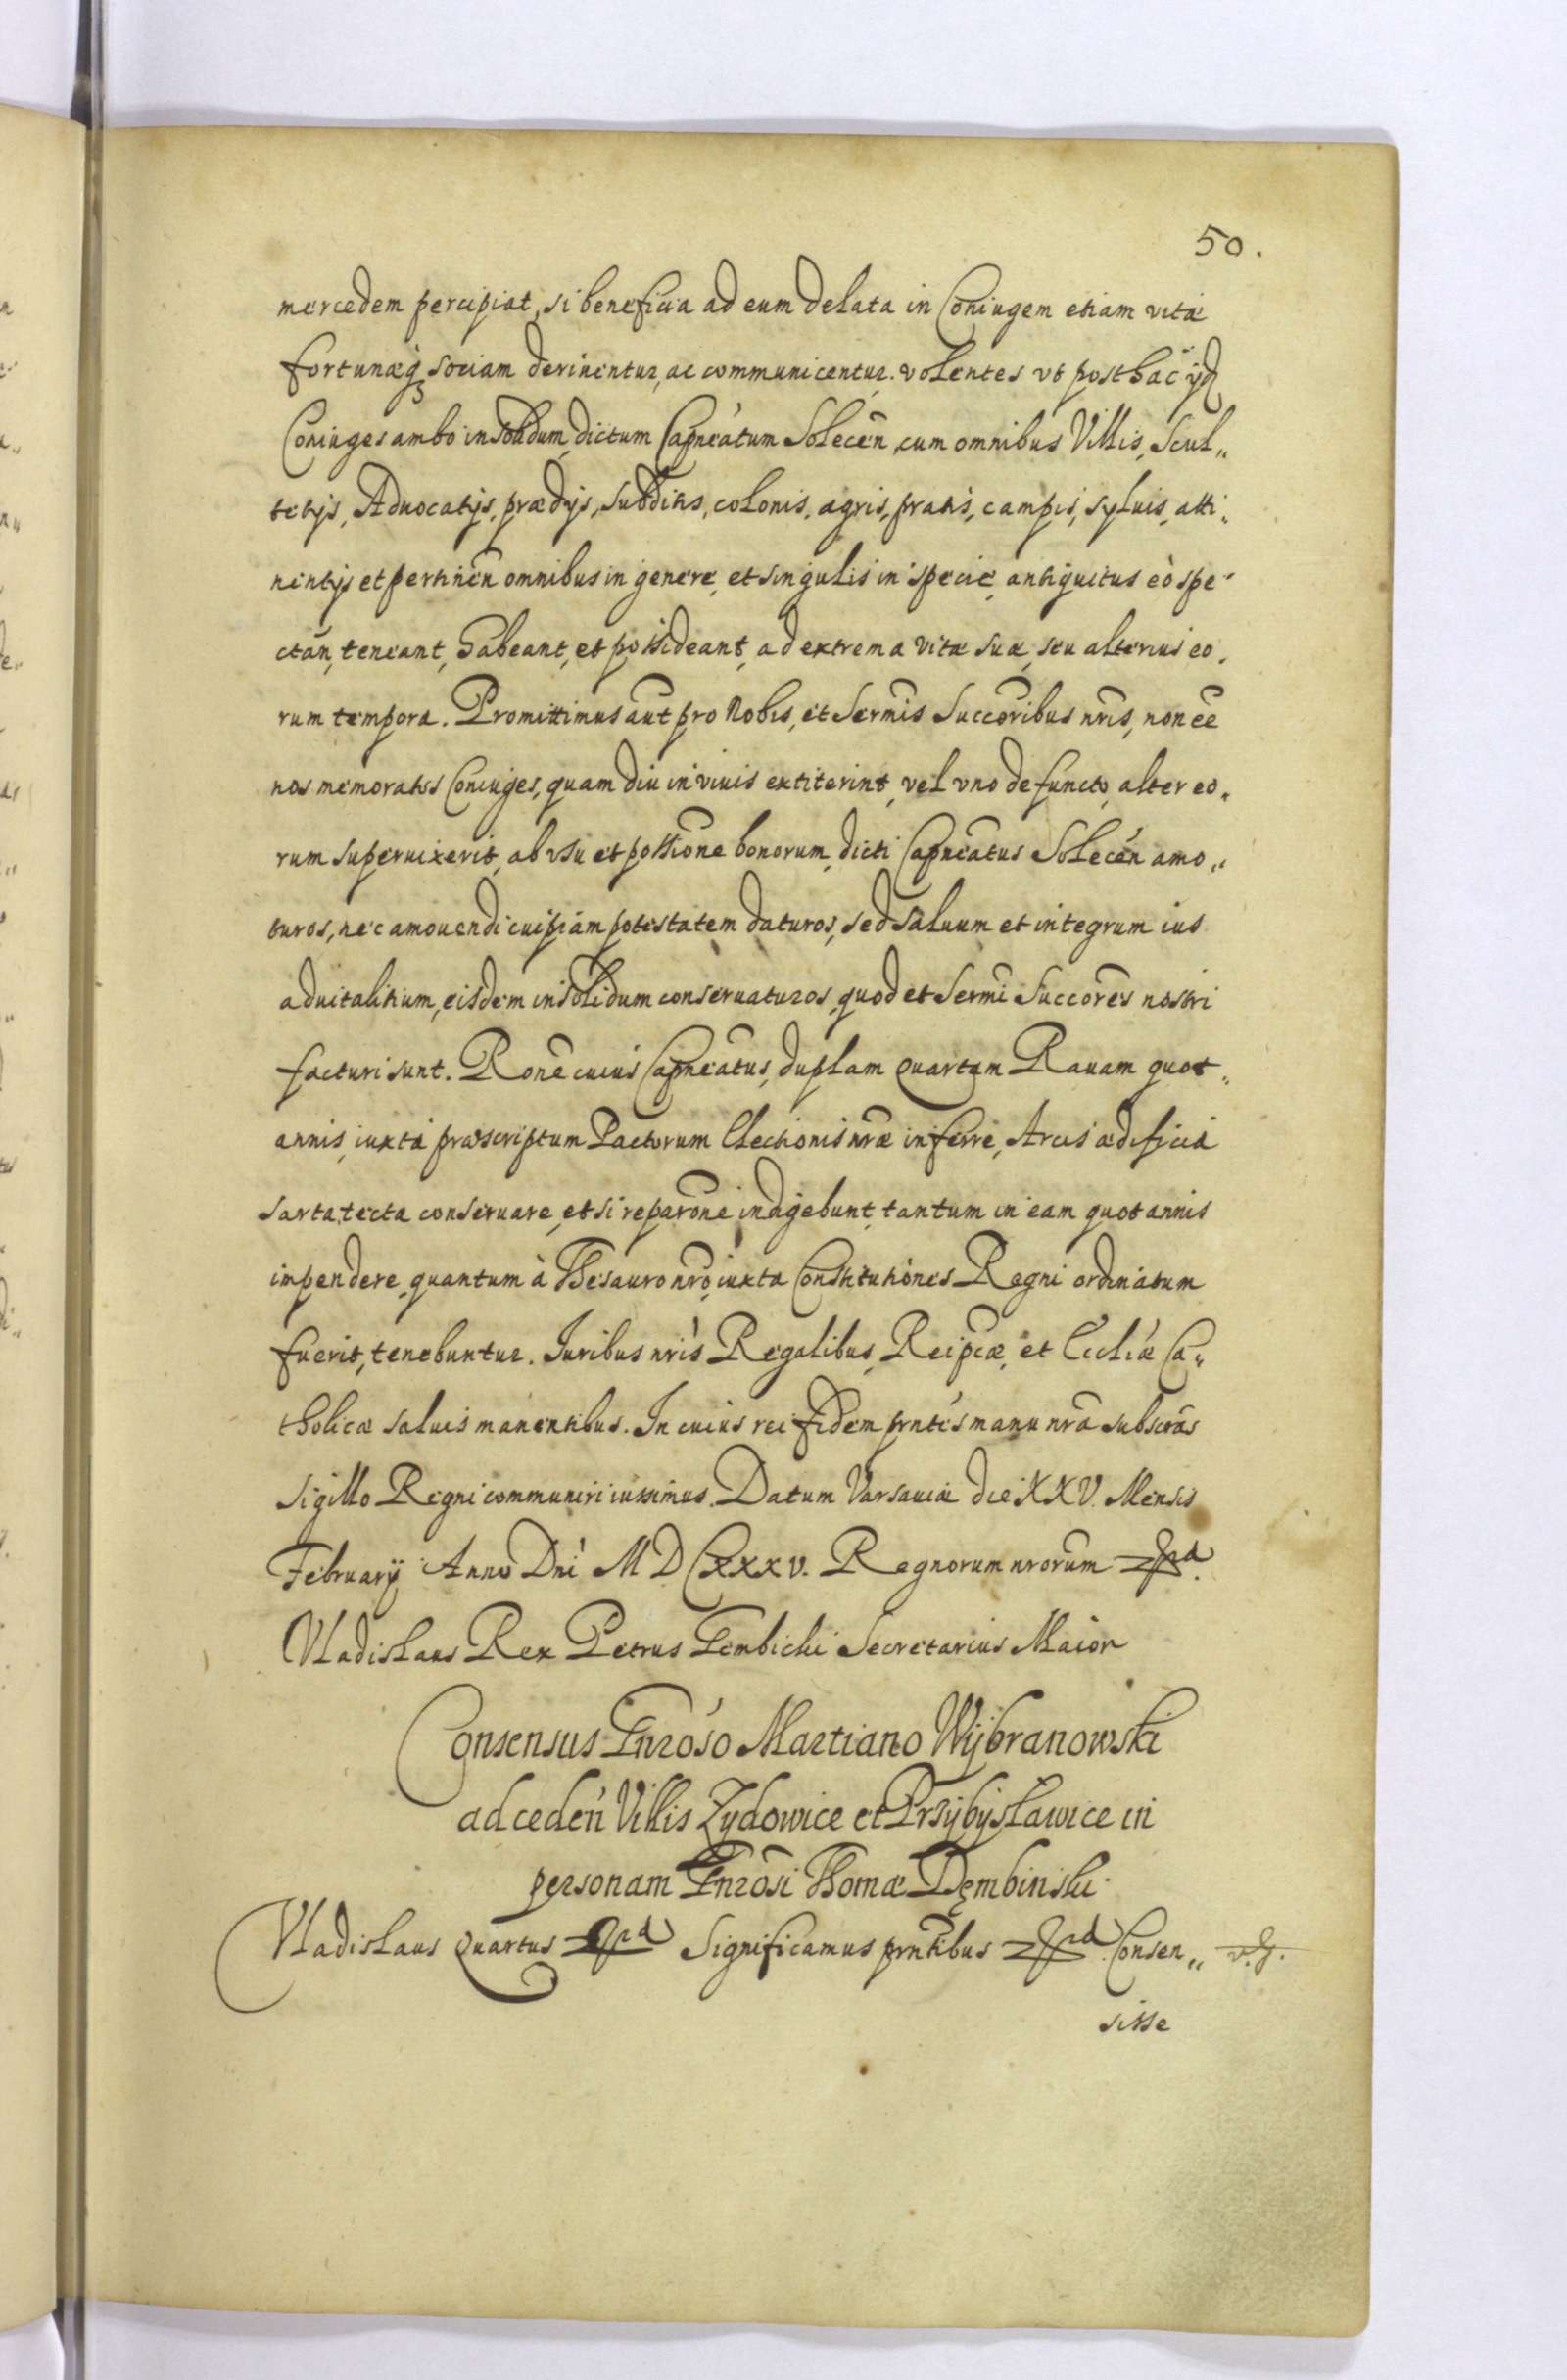 50.
mercedem percipiat, si beneficia ad eum delata in Coniugem etiam vitæ
fortunæq sociam deriuentur, ac communicentur. volentes vt posthac ijd
Coniuges ambo in solidum, dictum Capneatum Solecen, cum omnibus Villis, Scul„
tetijs, Aduocatijs, prædijs, subditis, colonis, agris, pratis, campis, syluis, atti„
nentijs et pertinen omnibus in genere, et singulis in specie, antiquitus eò spe„
ctan, teneant, habeant, et possideant, ad extrema vitæ suæ, seu alterius eo„
rum tempora. Promittimus aut pro Nobis, et Sermis Succoribus nris, non ee
nos memoratos Coniuges, quam diu in viuis extiterint, vel vno defuncto, alter eo„
rum superuixerit, ab vsu et possione bonorum, dicti Capneatus Solecen amo„
turos, nec amouendi cuipiam potestatem daturos, sed saluum et integrum ius
aduitalitium, eisdem in solidum conseruaturos, quod et Sermi Succores nostri
facturi sunt. Rone cuius Capneatus, duplam quartam Rauam quot„
annis, iuxta præscriptum Pactorum Electionis nræ inferre, Arcis ædificia
sarta tecta conseruare, et si reparone indigebunt, tantum in eam quot annis
impendere, quantum à Thesauro nro, iuxta Constitutiones Regni ordinatum
fuerit, tenebuntur. Iuribus nris Regalibus, Reipcæ, et Eccliæ Ca„
tholicæ saluis manentibus. In cuius rei fidem prntes manu nra subscras
Sigillo Regni communiri iussimus. Datum Varsauiæ die XXV. Mensis
February Anno Dni M D CXXXV. Regnorum nrorum
Vladislaus Rex Petrus Gembicki Secretarius Maior
Consensus Gnroso Martiano Wijbranowski
ad ceden Villis Zydowice et Przijbijsławice in
personam Gnrosi Thomæ Dęmbinski.
Vladislaus Quartus Significamus prntibus Consen„
sisse